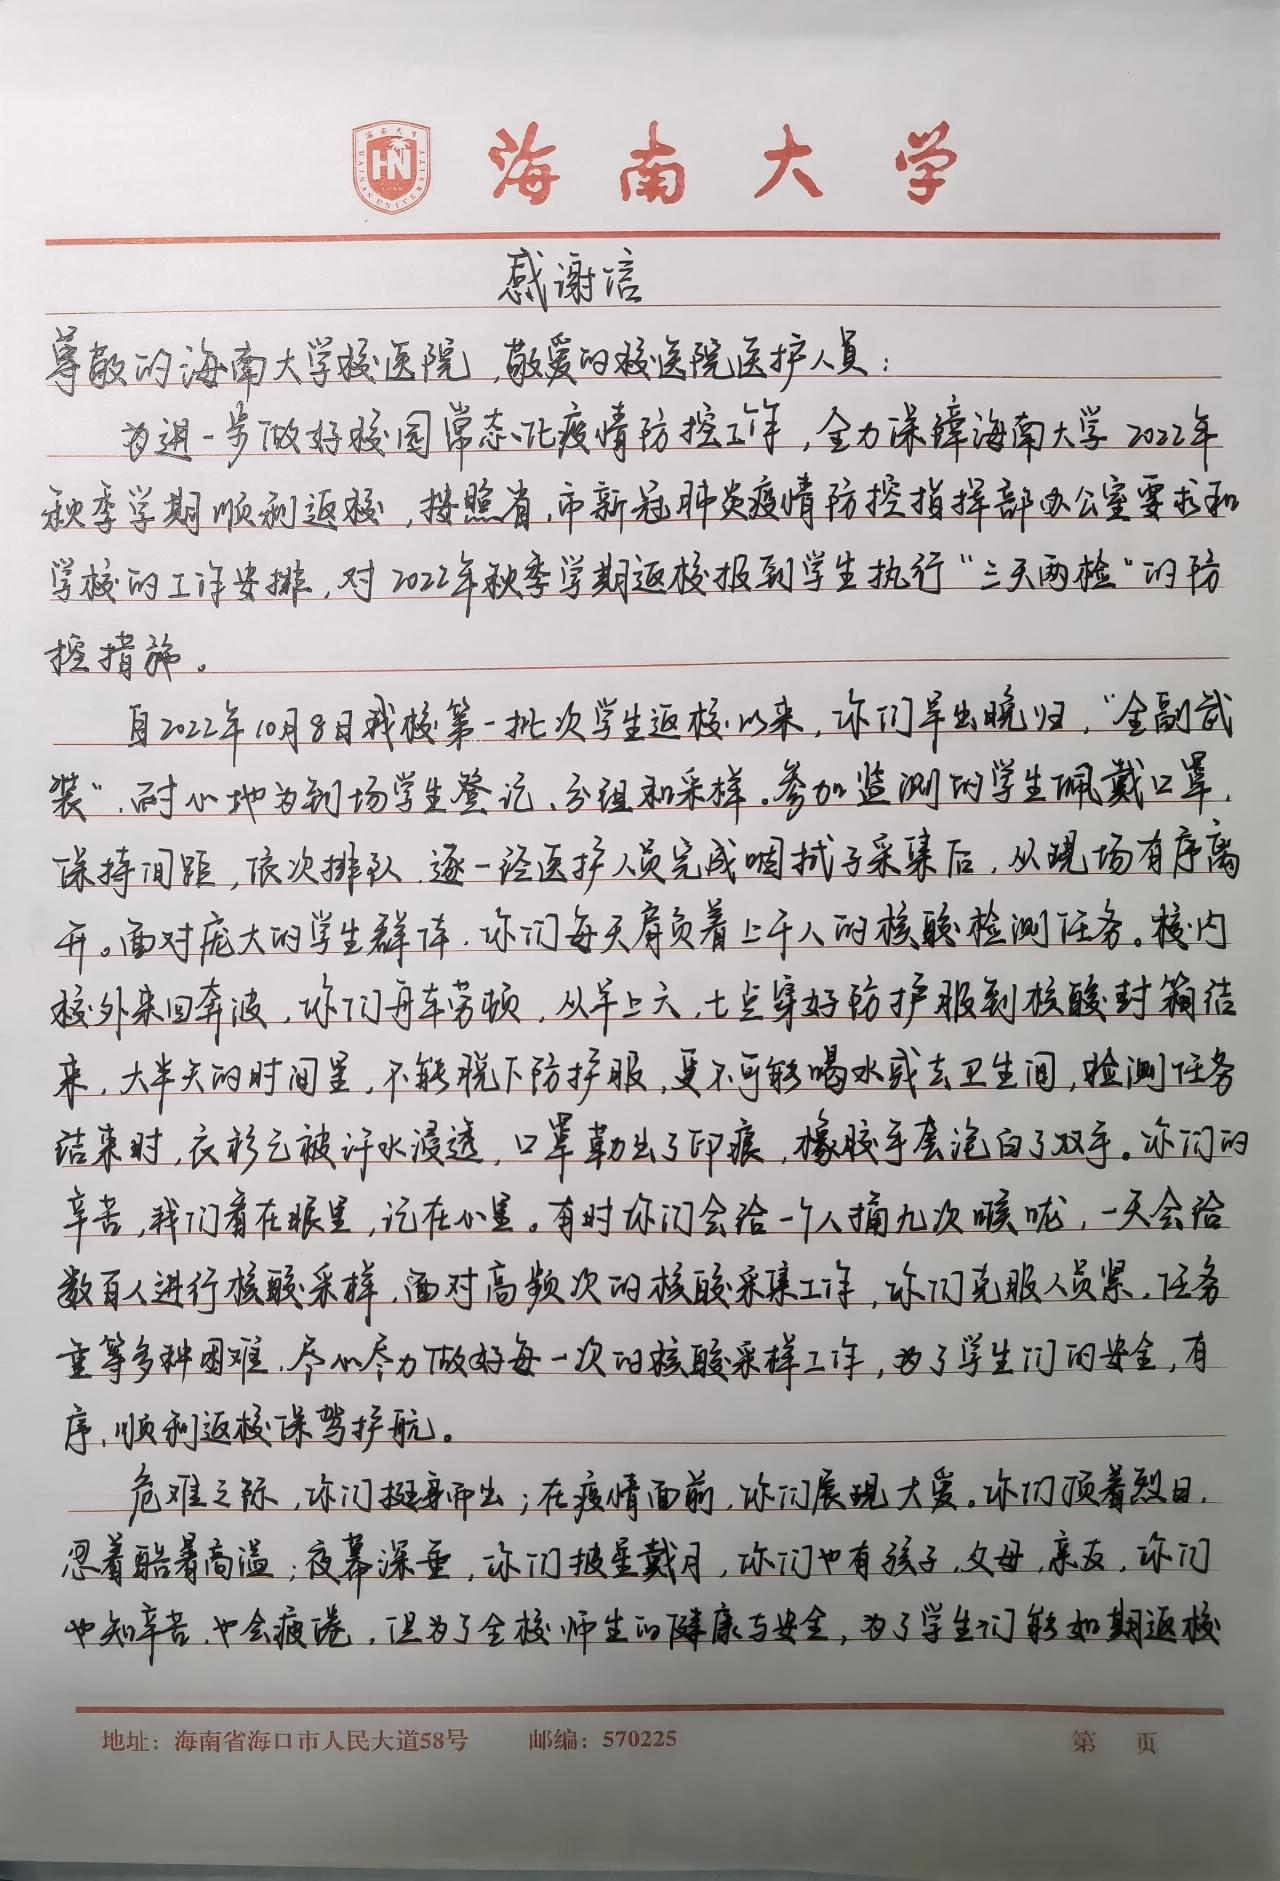 海南大学
HAINAN UNIVERSITY
感谢信
尊敬的海南大学校医院，敬爱的校医院医护人员：
为进一步做好校园常态化疫情防控工作，全力保障海南大学2022年
秋季学期顺利返校，按照省、市新冠肺炎疫情防控指挥部办公室要求和
学校的工作安排，对2022年秋季学期返校报到学生执行“三天两检”的防
控措施。
自2022年10月8日我校第一批次学生返校以来，你们早出晚归，“全副武
装”，耐心地为到场学生登记、分组和采样。参加监测的学生佩戴口罩，
保持间距，依次排队，逐一经医护人员完成咽拭子采集后，从现场有序离
开。面对庞大的学生群体，你们每天肩负着上千人的核酸检测任务。校内
校外来回奔波，你们舟车劳顿，从早上六、七点穿好防护服到核酸封箱结
束，大半天的时间里，不能脱下防护服，更不可能喝水或去卫生间，检测任务
结束时，衣衫已被汗水浸透，口罩勒出了印痕，橡胶手套泡白了双手。你们的
辛苦，我们看在眼里，记在心里。有时你们会给一个人捅九次喉咙，一天会给
数百人进行核酸采样，面对高频次的核酸采集工作，你们克服人员紧、任务
重等多种困难，尽心尽力做好每一次的核酸采样工作，为了学生们的安全，有
序，顺利返校保驾护航。
危难之际，你们挺身而出；在疫情面前，你们展现大爱。你们顶着烈日，
忍着酷暑高温；夜幕深垂，你们披星戴月，你们也有孩子，父母，亲友，你们
也知辛苦，也会疲倦，但为了全校师生的健康与安全，为了学生们能如期返校
地址：海南省海口市人民大道58号 邮编：570225 第 页